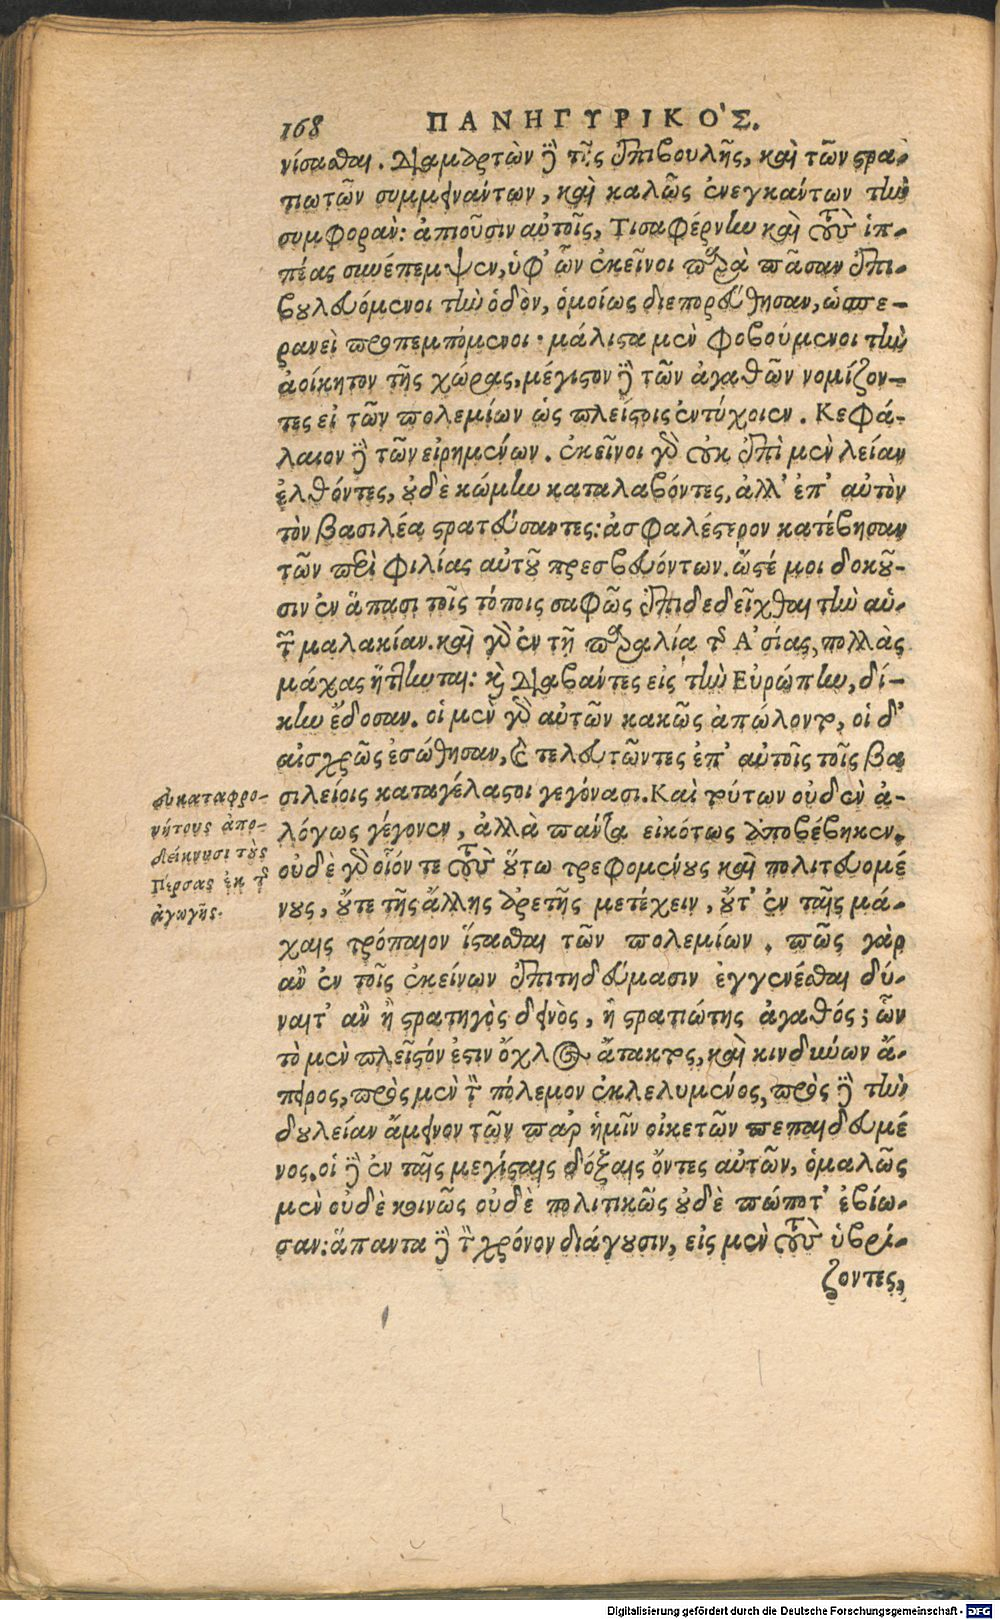 168 ΠΑΝΗΓΥΡΙΚΟ'Σ.
νίσασθαι. διαμαρτὼν δὲ τῆς ἐπιβουλῆς, καὶ τῶν στρα-
τιωτῶν συμμεινάντων, καὶ καλῶς ἐνεγκάντων τὴν
συμφοράν: ἀπιοῦσιν αὐτοῖς, Τισαφέρνην καὶ τοὺς ἱπ-
πέας συνέπεμψεν, ὑφ' ὧν ἐκεῖνοι παρὰ πᾶσαν ἐπι-
βουλευόμενοι τὴν ὁδὸν, ὁμοίως διεπορεύθησαν, ὡσπε-
ρανεὶ προπεμπόμενοι· μάλιστα μὲν φοβούμενοι τὴν
ἀοίκητον τῆς χώρας, μέγιστον δὲ τῶν ἀγαθῶν νομίζον-
τες εἰ τῶν πολεμίων ὡς πλείστοις ἐντύχοιεν. Κεφά-
λαιον δὲ τῶν εἰρημένων. ἐκεῖνοι γὰρ οὐκ ἐπὶ μὲν λείαν
ἐλθόντες, οὐδὲ κώμην καταλαβόντες, ἀλλ' ἐπ' αὐτὸν
τὸν βασιλέα στρατεύσαντες: ἀσφαλέστερον κατέβησαν
τῶν περὶ φιλίας αὐτοῦ πρεσβευόντων. ὥστέ μοι δοκοῦ-
σιν ἐν ἅπασι τοῖς τόποις σαφῶς ἐπιδεδεῖχθαι τὴν αὑ-
τῶν μαλακίαν. καὶ γὰρ ἐν τῇ παραλίᾳ τῆς Ἀσίας, πολλὰς
μάχας ἥττηνται: καὶ διαβάντες εἰς τὴν Εὐρώπην, δί-
κην ἔδοσαν. οἱ μὲν γὰρ αὐτῶν κακῶς ἀπώλοντο, οἱ δ'
αἰσχρῶς ἐσώθησαν, καὶ τελευτῶντες ἐπ' αὐτοῖς τοῖς βα
σιλείοις καταγέλαστοι γεγόνασι. Καὶ τούτων οὐδὲν ἀ-
λόγως γέγονεν, ἀλλὰ πάντα εἰκότως ἀποβέβηκεν.
οὐδὲ γὰρ οἷόν τε τοὺς οὕτω τρεφομένους καὶ πολιτευομέ
νους, οὔτε τῆς ἄλλης ἀρετῆς μετέχειν, οὔτ' ἐν ταῖς μά-
χαις τρόπαιον ἵστασθαι τῶν πολεμίων. πῶς γὰρ
ἂν ἐν τοῖς ἐκείνων ἐπιτηδεύμασιν ἐγγενέσθαι δύ-
ναιτ' ἂν ἢ στρατηγὸς δεινὸς, ἢ στρατιώτης ἀγαθός; ὧν
τὸ μὲν πλεῖστόν ἐστιν ὄχλος ἄτακτος, καὶ κινδύνων ἄ-
πειρος, πρὸς μὲν τὸν πόλεμον ἐκλελυμένος, πρὸς δὲ τὴν
δουλείαν ἄμεινον τῶν παρ' ἡμῖν οἰκετῶν πεπαιδευμέ
νος. οἱ δὲ ἐν ταῖς μεγίσταις δόξαις ὄντες αὐτῶν, ὁμαλῶς
μὲν οὐδὲ κοινῶς οὐδὲ πολιτικῶς οὐδὲ πώποτ' ἐβίω-
σαν: ἅπαντα δὲ τὸν χρόνον διάγουσιν, εἰς μὲν τοὺς ὑβρί-
ζοντες,
εὐκαταφρο-
νήτους ἀπο-
δείκνυσι τοὺς
Πέρσας ἐκ τῆς
ἀγωγῆς.
Digitalisierung gefördert durch die Deutsche Forschungsgemeinschaft - DFG